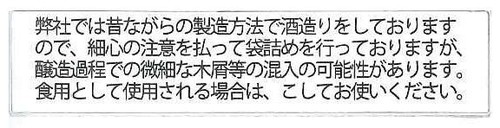 弊社では昔ながらの製造方法で酒造りをしております
ので、細心の注意を払って袋詰めを行っておりますが、
醸造過程での微細な木屑等の混入の可能性があります。
食用として使用される場合は、こしてお使いください。